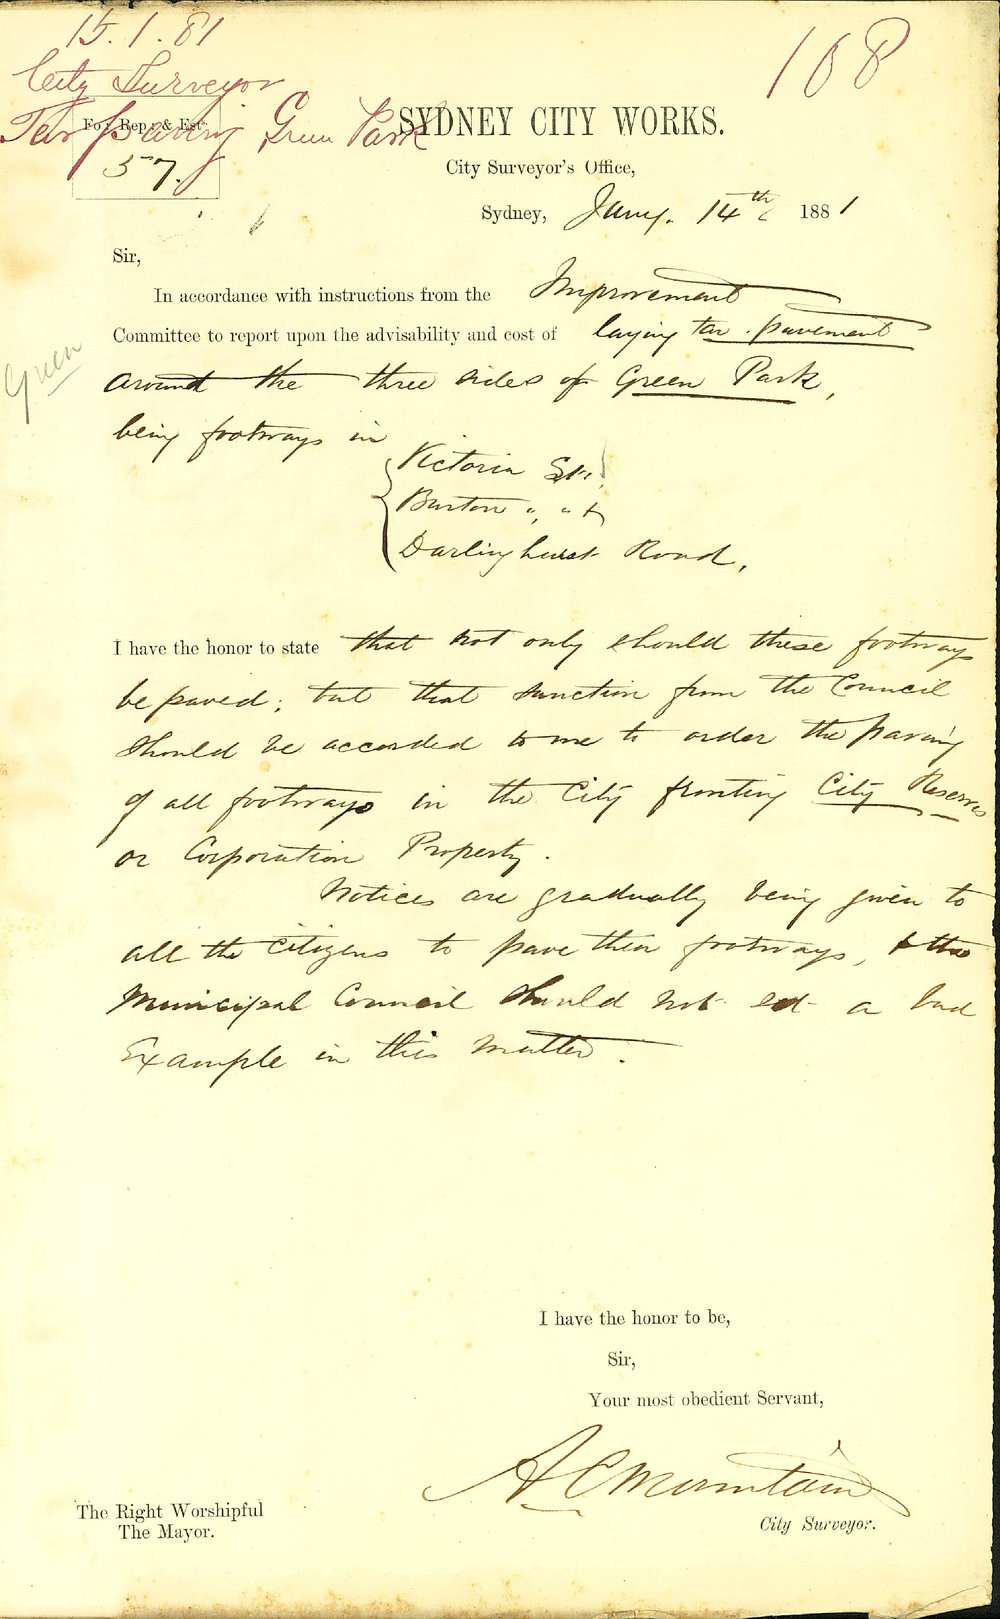 15.1.81
108
City Surveyor
Tar paving Green Park
For Rep. & Est.
57.
SYDNEY CITY WORKS.
City Surveyor's Office,
Sydney, Jany. 14th 1881
Sir,
In accordance with instructions from the Improvement
Committee to report upon the advisability and cost of laying tar pavement
Green
around the three sides of Green Park,
being footways in
Victoria St.
Burton " " &
Darlinghurst Road.
I have the honor to state that not only should these footways
be paved; but that sanction from the Council
should be accorded to me to order the paving
of all footways in the City fronting City Reserves
or Corporation Property.
Notices are gradually being given to
all the citizens to pave their footways, & the
Municipal Council should not set a bad
Example in this matter.
I have the honor to be,
Sir,
Your most obedient Servant,
A C Mountain
City Surveyor.
The Right Worshipful
The Mayor.